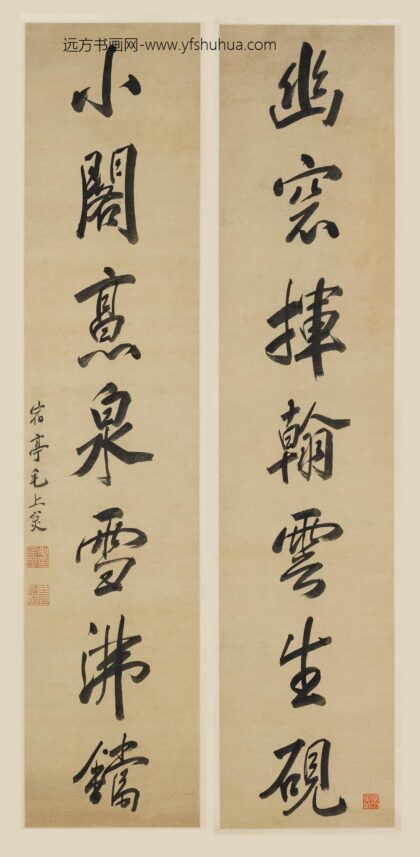 远方书画网-www.yfshuhua.com
幽窓揮翰雲生硯
小閣烹泉雪沸鐺
宿亭毛上炱